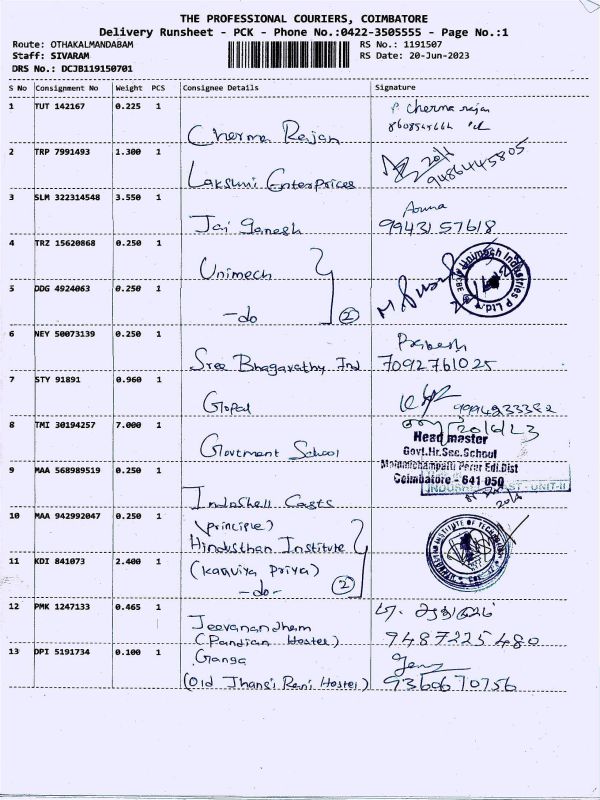 THE PROFESSIONAL COURIERS, COIMBATORE
Delivery Runsheet - PCK - Phone No.:0422-3505555 - Page No.:1
Route: OTHAKALMANDABAM RS No.: 1191507
Staff: SIVARAM RS Date: 20-Jun-2023
DRS No.: DCJB119150701
S No Consignment No Weight PCS Consignee Details Signature
1 TUT 142167 0.225 1 P. Cherma rajan
Cherma Rajan
2 TRP 7991493 1.300 1 20/6 9486445805
Lakshmi Enterprices
3 SLM 322314548 3.550 1 Aruna
Jai Ganesh 9943157618
4 TRZ 15620868 0.250 1 Unimech Industries P Ltd.
Unimech
5 DDG 4924063 0.250 1
-do (2)
6 NEY 50073139 0.250 1 Prabesh
Sree Bhagavathy Ind 7092761025
7 STY 91891 0.960 1
Gopal 9994933352
8 TMI 30194257 7.000 1 20/6/23
Head master
Govt.Hr.Sec.School
Goverment School
9 MAA 568989519 0.250 1 Malumichampatti Perur Edi.Dist
Coimbatore - 641 050
UNIT-II
IndoShell Casts 20/6
10 MAA 942992047 0.250 1
(principle)
Hindusthan Institute INSTITUTE OF TECHNOLOGY
11 KDI 841073 2.400 1
(Kaaviya Priya)
-do- (2)
12 PMK 1247133 0.465 1
Jeevanandham
(Pandian Hostel) 9487225480
13 DPI 5191734 0.100 1 Ganga
(Old Jhansi Rani Hostel) 9360670756